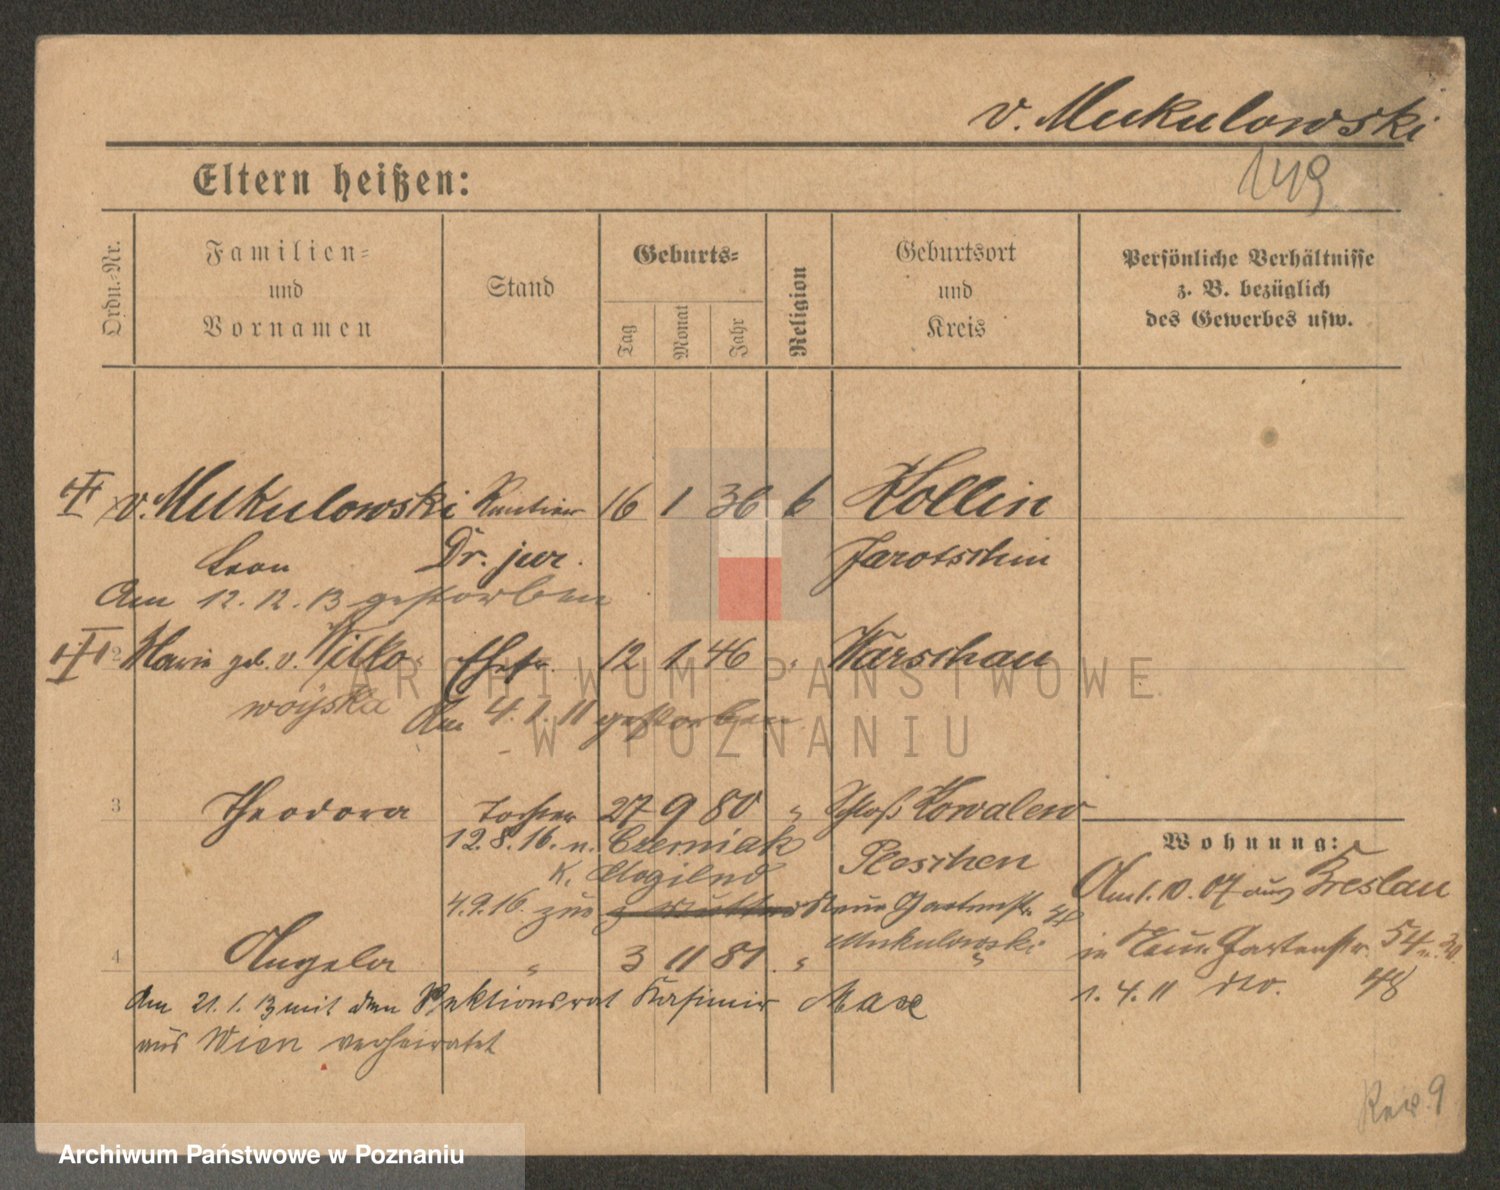 v. Mukulowski
149
Eltern heißen:
Ordn.-Nr.
Familien-
und
Vornamen
Stand
Geburts-
Tag
Monat
Jahr
Religion
Geburtsort
und
Kreis
Persönliche Verhältnisse
z. B. bezüglich
des Gewerbes usw.
v. Mukulowski Rentier 16 1 36 k Kollin
Leon Dr. jur. Jarotschin
Am 12.12.13 gestorben
2 Marie geb. v. Wilko- Ehefr. 12 1 46 " Warschau
woyska Am 4.1.11 gestorben
3 Theodora Tochter 27 9 80 " Schloß Kowalew
12.8.16. n. Czerniak Pleschen
K. Mogilno
4.9.16. zur Neue Gartenstr.
Mukulowski
4 Angela " 3 11 81 "
Am 21.1.13 mit dem Sektionsrat Kasimir Maxe
aus Wien verheiratet
Wohnung:
Am 1.10.07 aus Breslau
in Neue Gartenstr. 54
1.4.11 do. 48
Rew. 9
ARCHIWUM PAŃSTWOWE
W POZNANIU
Archiwum Państwowe w Poznaniu